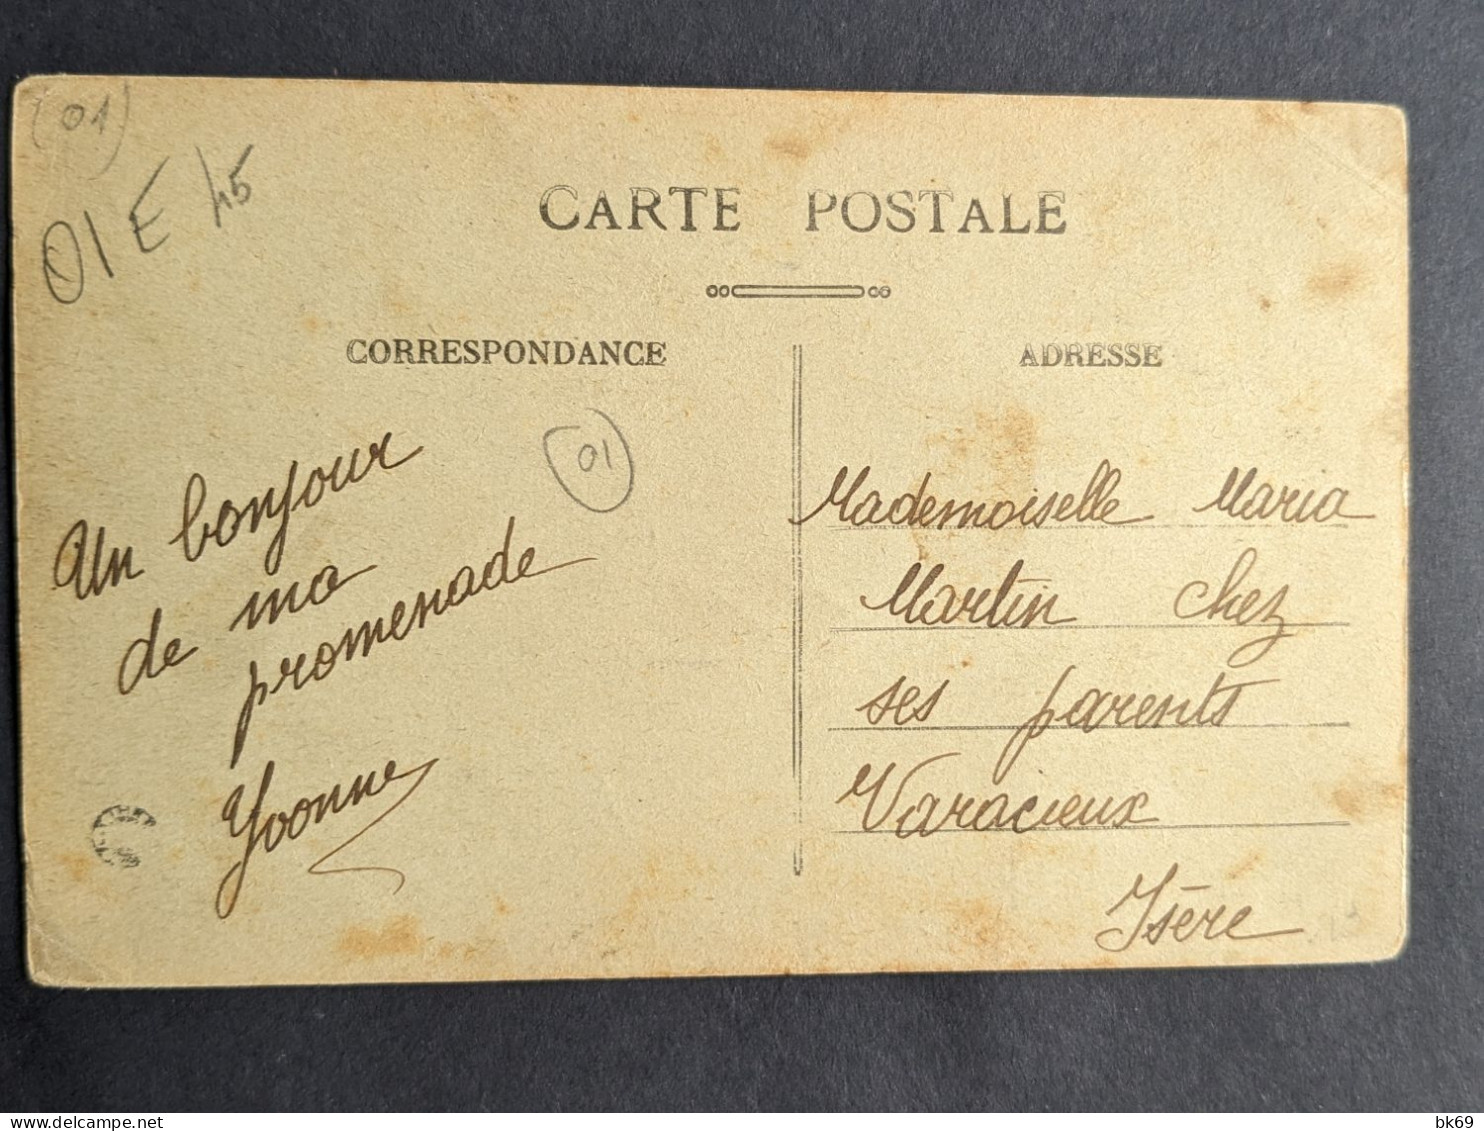 (01)
01 E 45
CARTE POSTALE
CORRESPONDANCE
ADRESSE
01
Un bonjour
de ma
promenade
Yvonne
Mademoiselle Maria
Martin chez
ses parents
Varacieux
Isère
delcampe.net
bk69